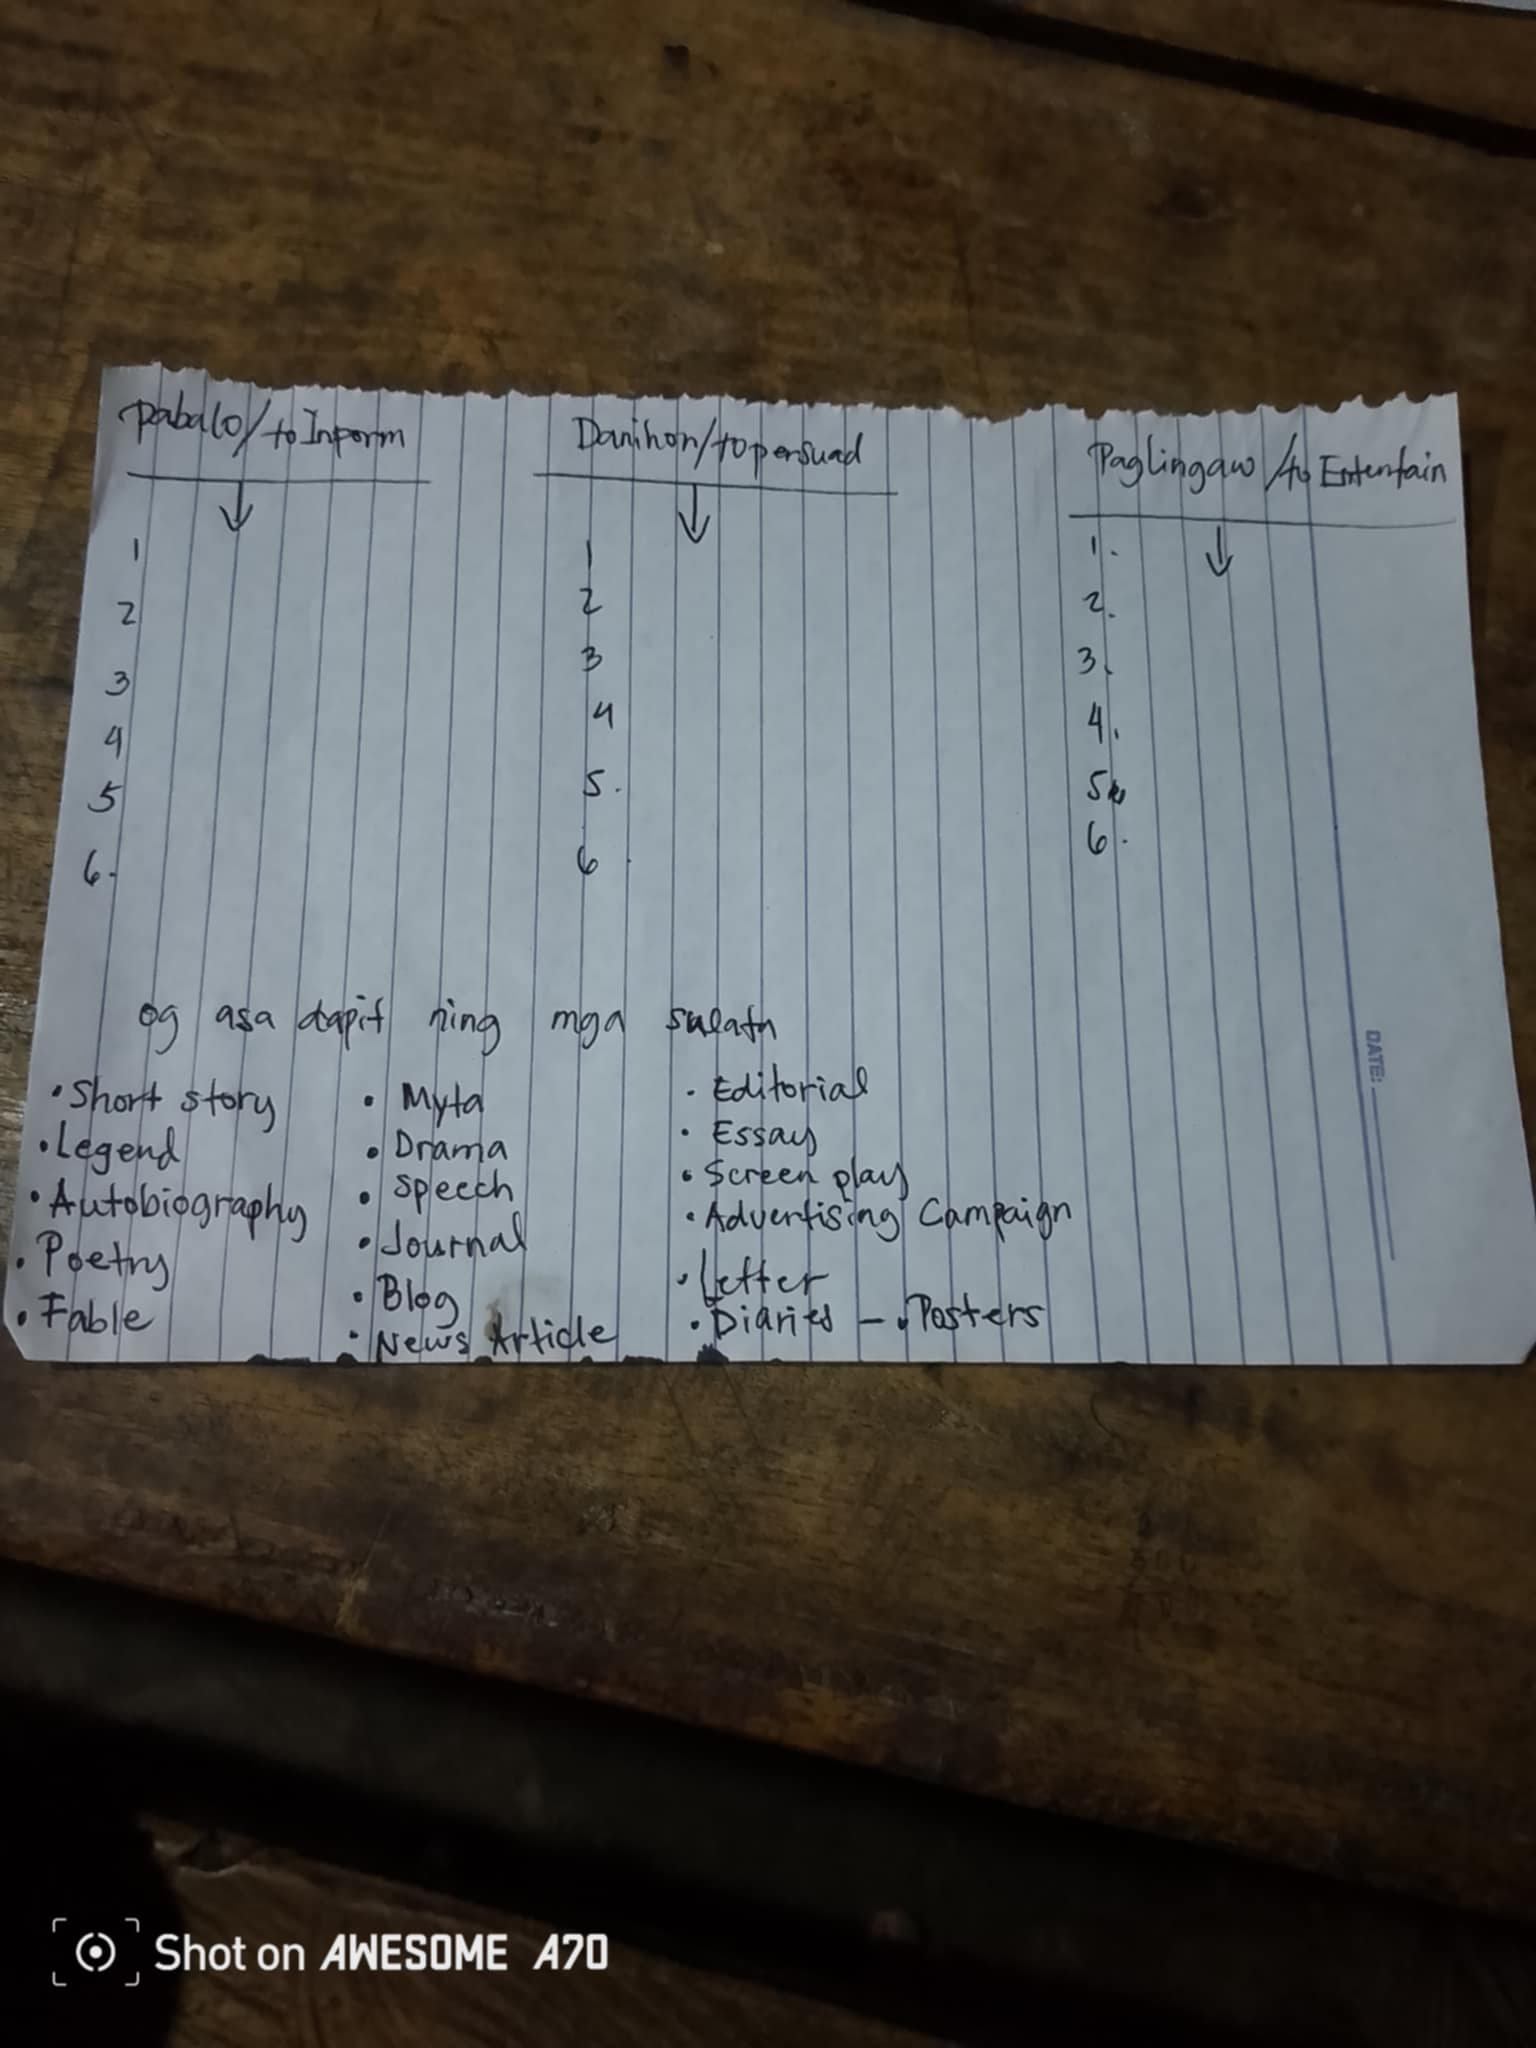 pabalo/to Inporm
Danihon/to persuad
Paglingaw/to Entertain
1
2
3
4
5
6.
1
2
3
4
5.
6.
1.
2.
3.
4.
5.
6.
og asa dapit ning mga sulatn
• Short story
• Legend
• Autobiography
• Poetry
• Fable
• Myta
• Drama
• speech
• Journal
• Blog
• News Article
• Editorial
• Essay
• Screen play
• Advertising Campaign
• Letter
• Diaries – • Posters
DATE:
Shot on AWESOME A70